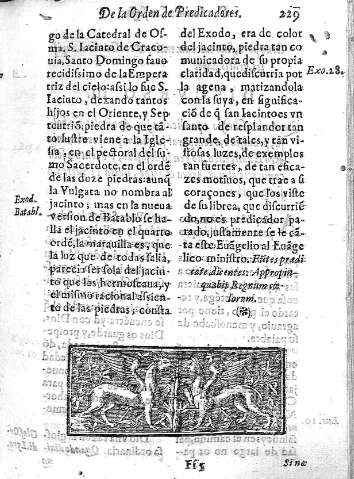 De la Orden de Predicadores. 229
go de la Catedral de Os-
ma. S. Iacinto de Craco-
uia, Santo Domingo fauo
recidissimo de la Empera
triz del cielo: assi lo fue S.
Iacinto, dexando tantos
hijos en el Oriente, y Sep
tentriõ, piedra de que tã-
to lustre viene a la Igle-
sia, en el pectoral del su-
mo Sacerdote, en el ordẽ
de las doze piedras: aunq̃
la Vulgata no nombra al
jacinto; mas en la nueua
version de Batablo se ha-
lla el jacinto en el quarto
ordẽ, la marauilla es, que
la luz que de todas salia,
parecia ser sola del jacin-
to que las hermoseaua, y
el mismo racional o assien-
to de las piedras; consta
Exod.
Batabl.
del Exodo, era de color
del jacinto, piedra tan co
municadora de su propia
claridad, que discurria por
la agena, matizandola
con la suya, en significa-
ció de q̃ san Iacinto es vn
santo de resplandor tan
grande, de tales, y tan vi-
stosas luzes, de exemplos
tan fuertes, de tan efica-
zes motiuos, que trae a si
coraçones, que los viste
de su librea, que discurriẽ
do, no es predicador pa-
rado, justamente se le cã-
ta este Euãgelio al Euãge
lico ministro. Eũtes prædi
cate dicentes: Appropin-
quabit Regnum cæ-
lorum.
Exo. 28.
Ff 5
Sino